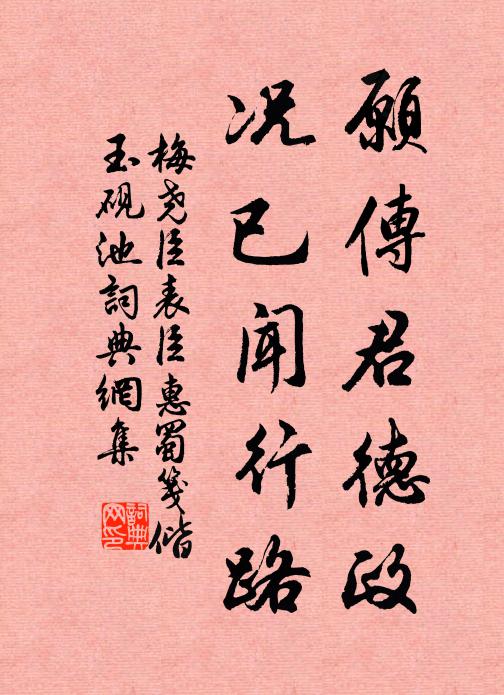 願傳君德政
况已聞行路
梅堯臣表臣惠蜀箋偕
玉硯池詞典網集
詞典網印